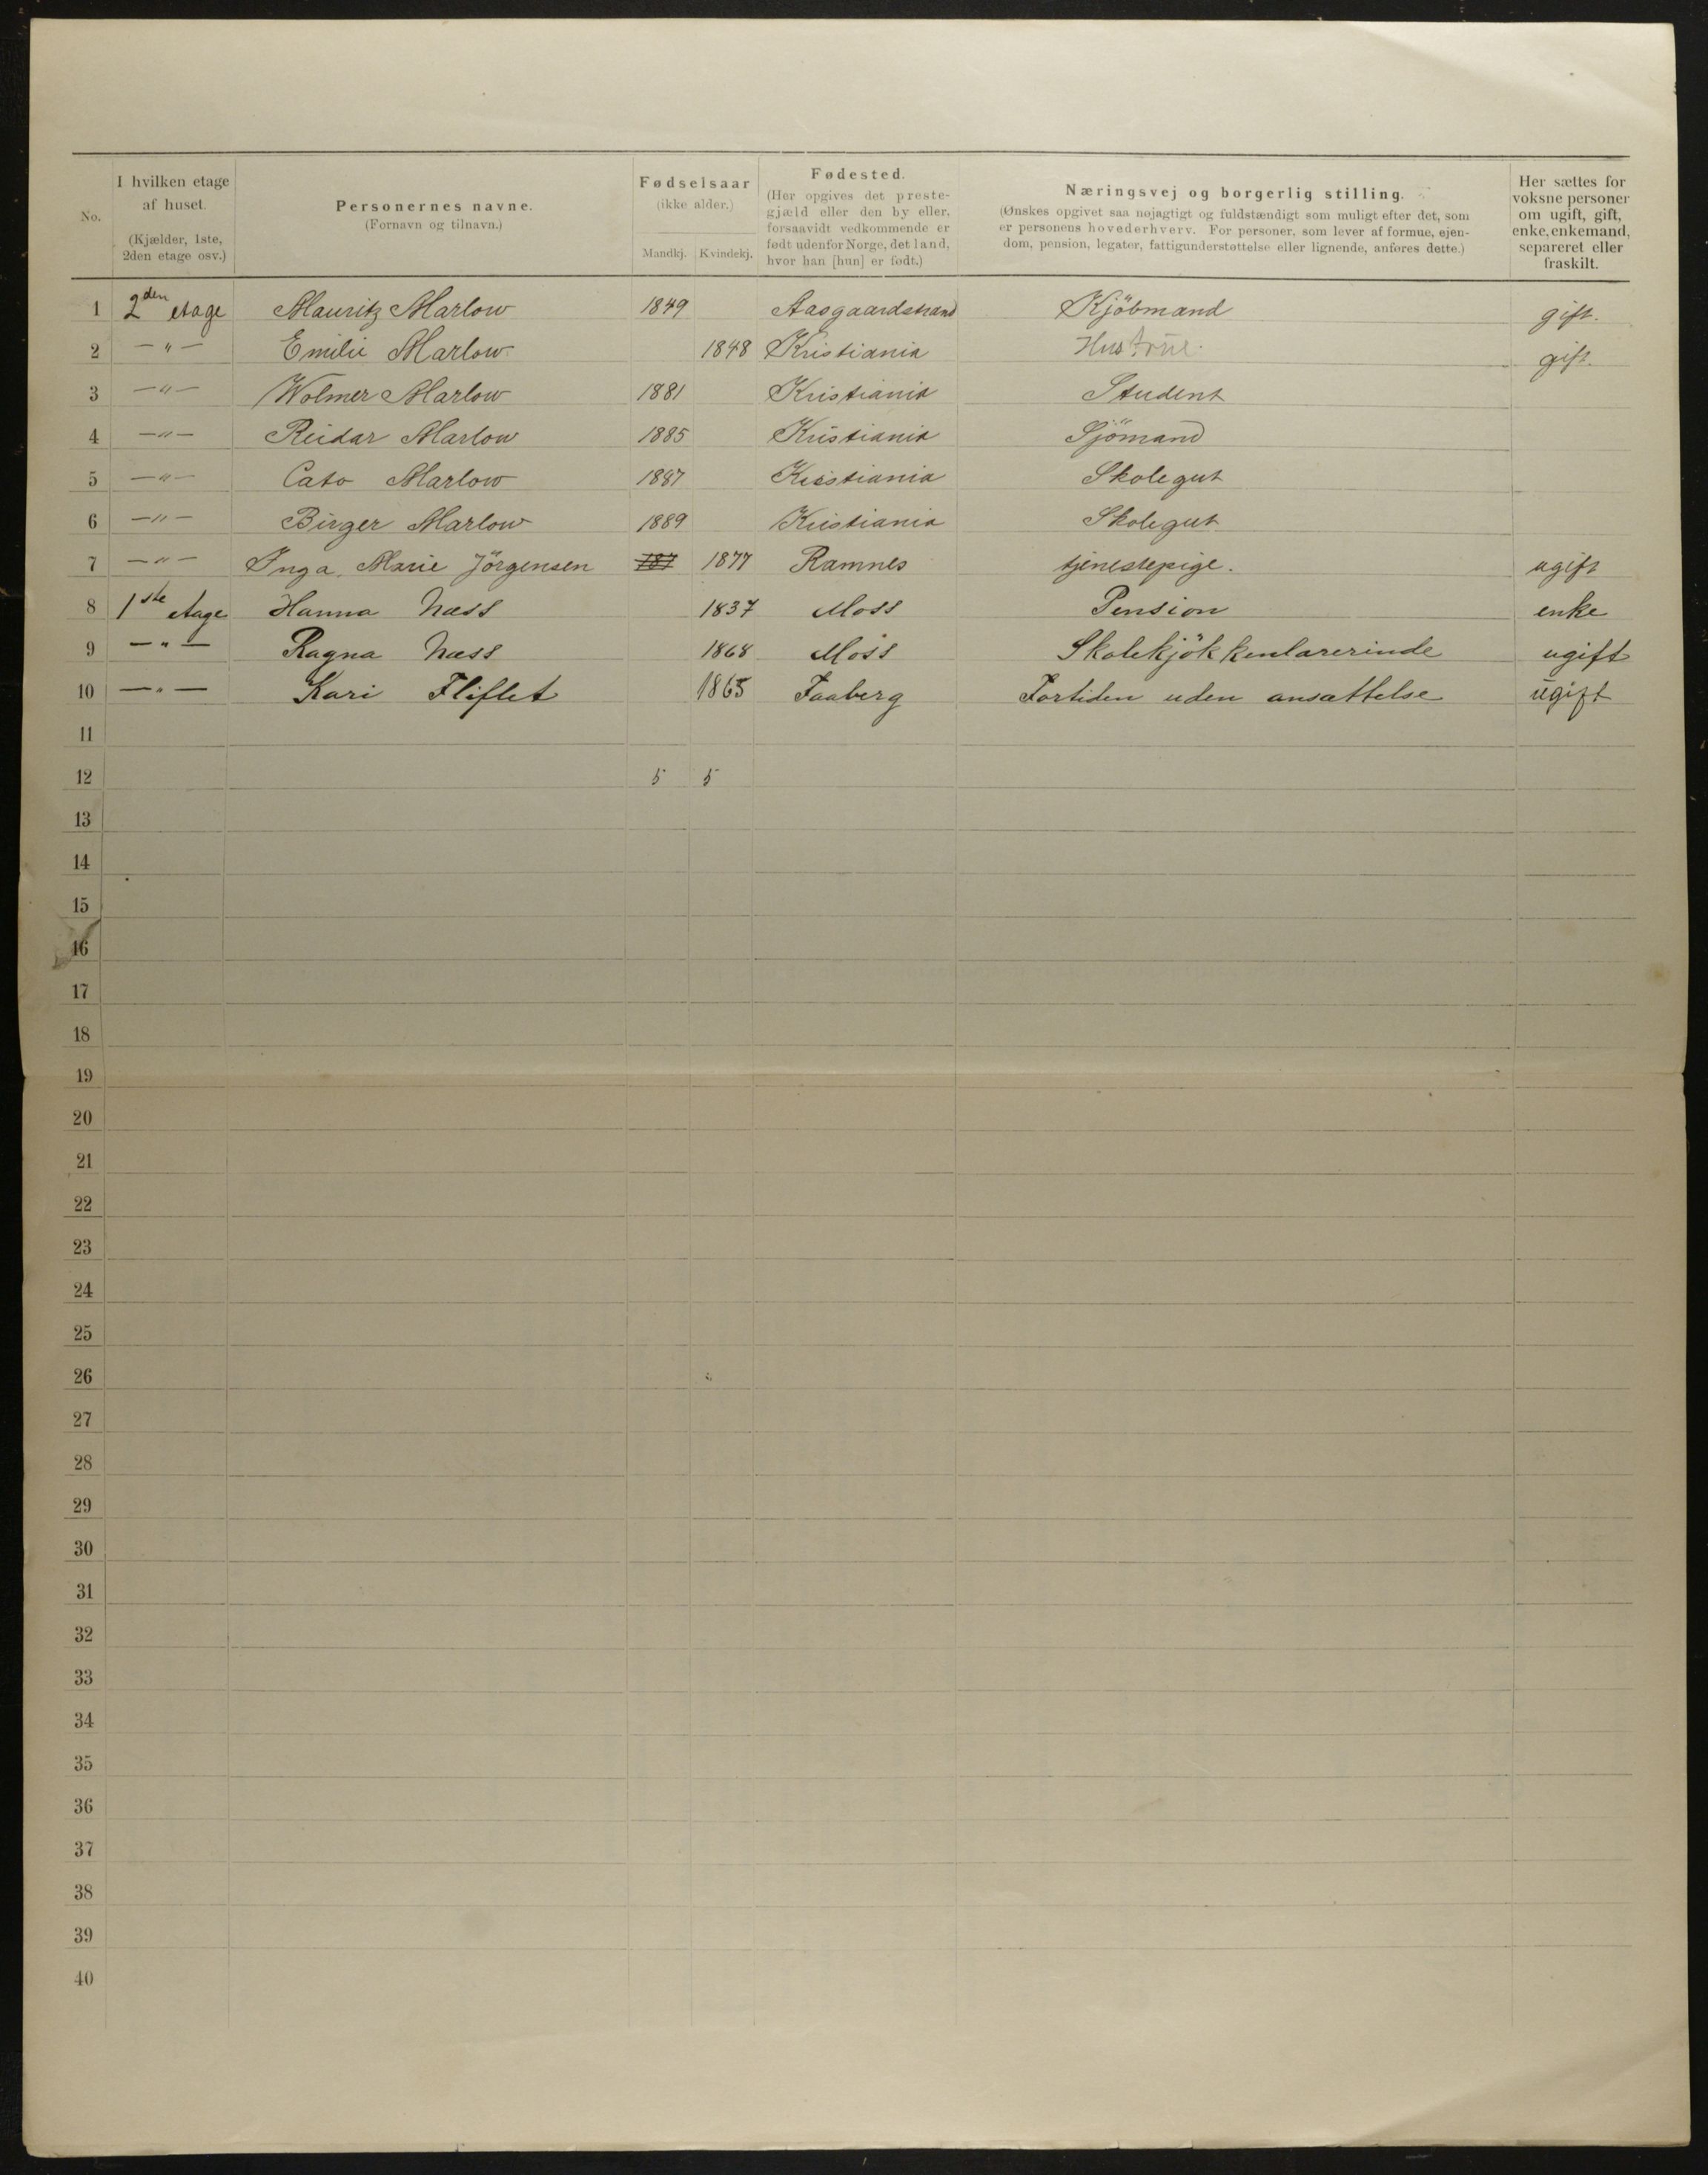 No. | I hvilken etage af huset. (Kjælder, 1ste, 2den etage osv.) | Personernes navne. (Fornavn og tilnavn.) | Fødselsaar (ikke alder.) Mandkj. | Kvindekj. | Fødested. (Her opgives det prestegjæld eller den by eller, forsaavidt vedkommende er født udenfor Norge, det land, hvor han [hun] er født.) | Næringsvej og borgerlig stilling. (Ønskes opgivet saa nøjagtigt og fuldstændigt som muligt efter det, som er personens hovederhverv. For personer, som lever af formue, ejendom, pension, legater, fattigunderstøttelse eller lignende, anføres dette.) | Her sættes for voksne personer om ugift, gift, enke, enkemand, separeret eller fraskilt.
1 2den etage Mauritz Marlow 1849 Aasgaardstrand Kjöbmand gift.
2 —"— Emilie Marlow 1848 Kristiania Hustrue. gift.
3 —"— Wolmer Marlow 1881 Kristiania Student
4 —"— Reidar Marlow 1885 Kristiania Sjömand
5 —"— Cato Marlow 1887 Kristiania Skolegut
6 —"— Birger Marlow 1889 Kristiania Skolegut
7 —"— Inga Marie Jörgensen 187 1877 Ramnes tjenestepige. ugift
8 1ste etage Hanna Næss 1837 Moss Pension enke
9 —"— Ragna Næss 1868 Moss Skolekjökkenlærerinde ugift
10 —"— Kari Fliflet 1865 Faaberg Fortiden uden ansættelse ugift
11
12 5 5
13
14
15
16
17
18
19
20
21
22
23
24
25
26
27
28
29
30
31
32
33
34
35
36
37
38
39
40